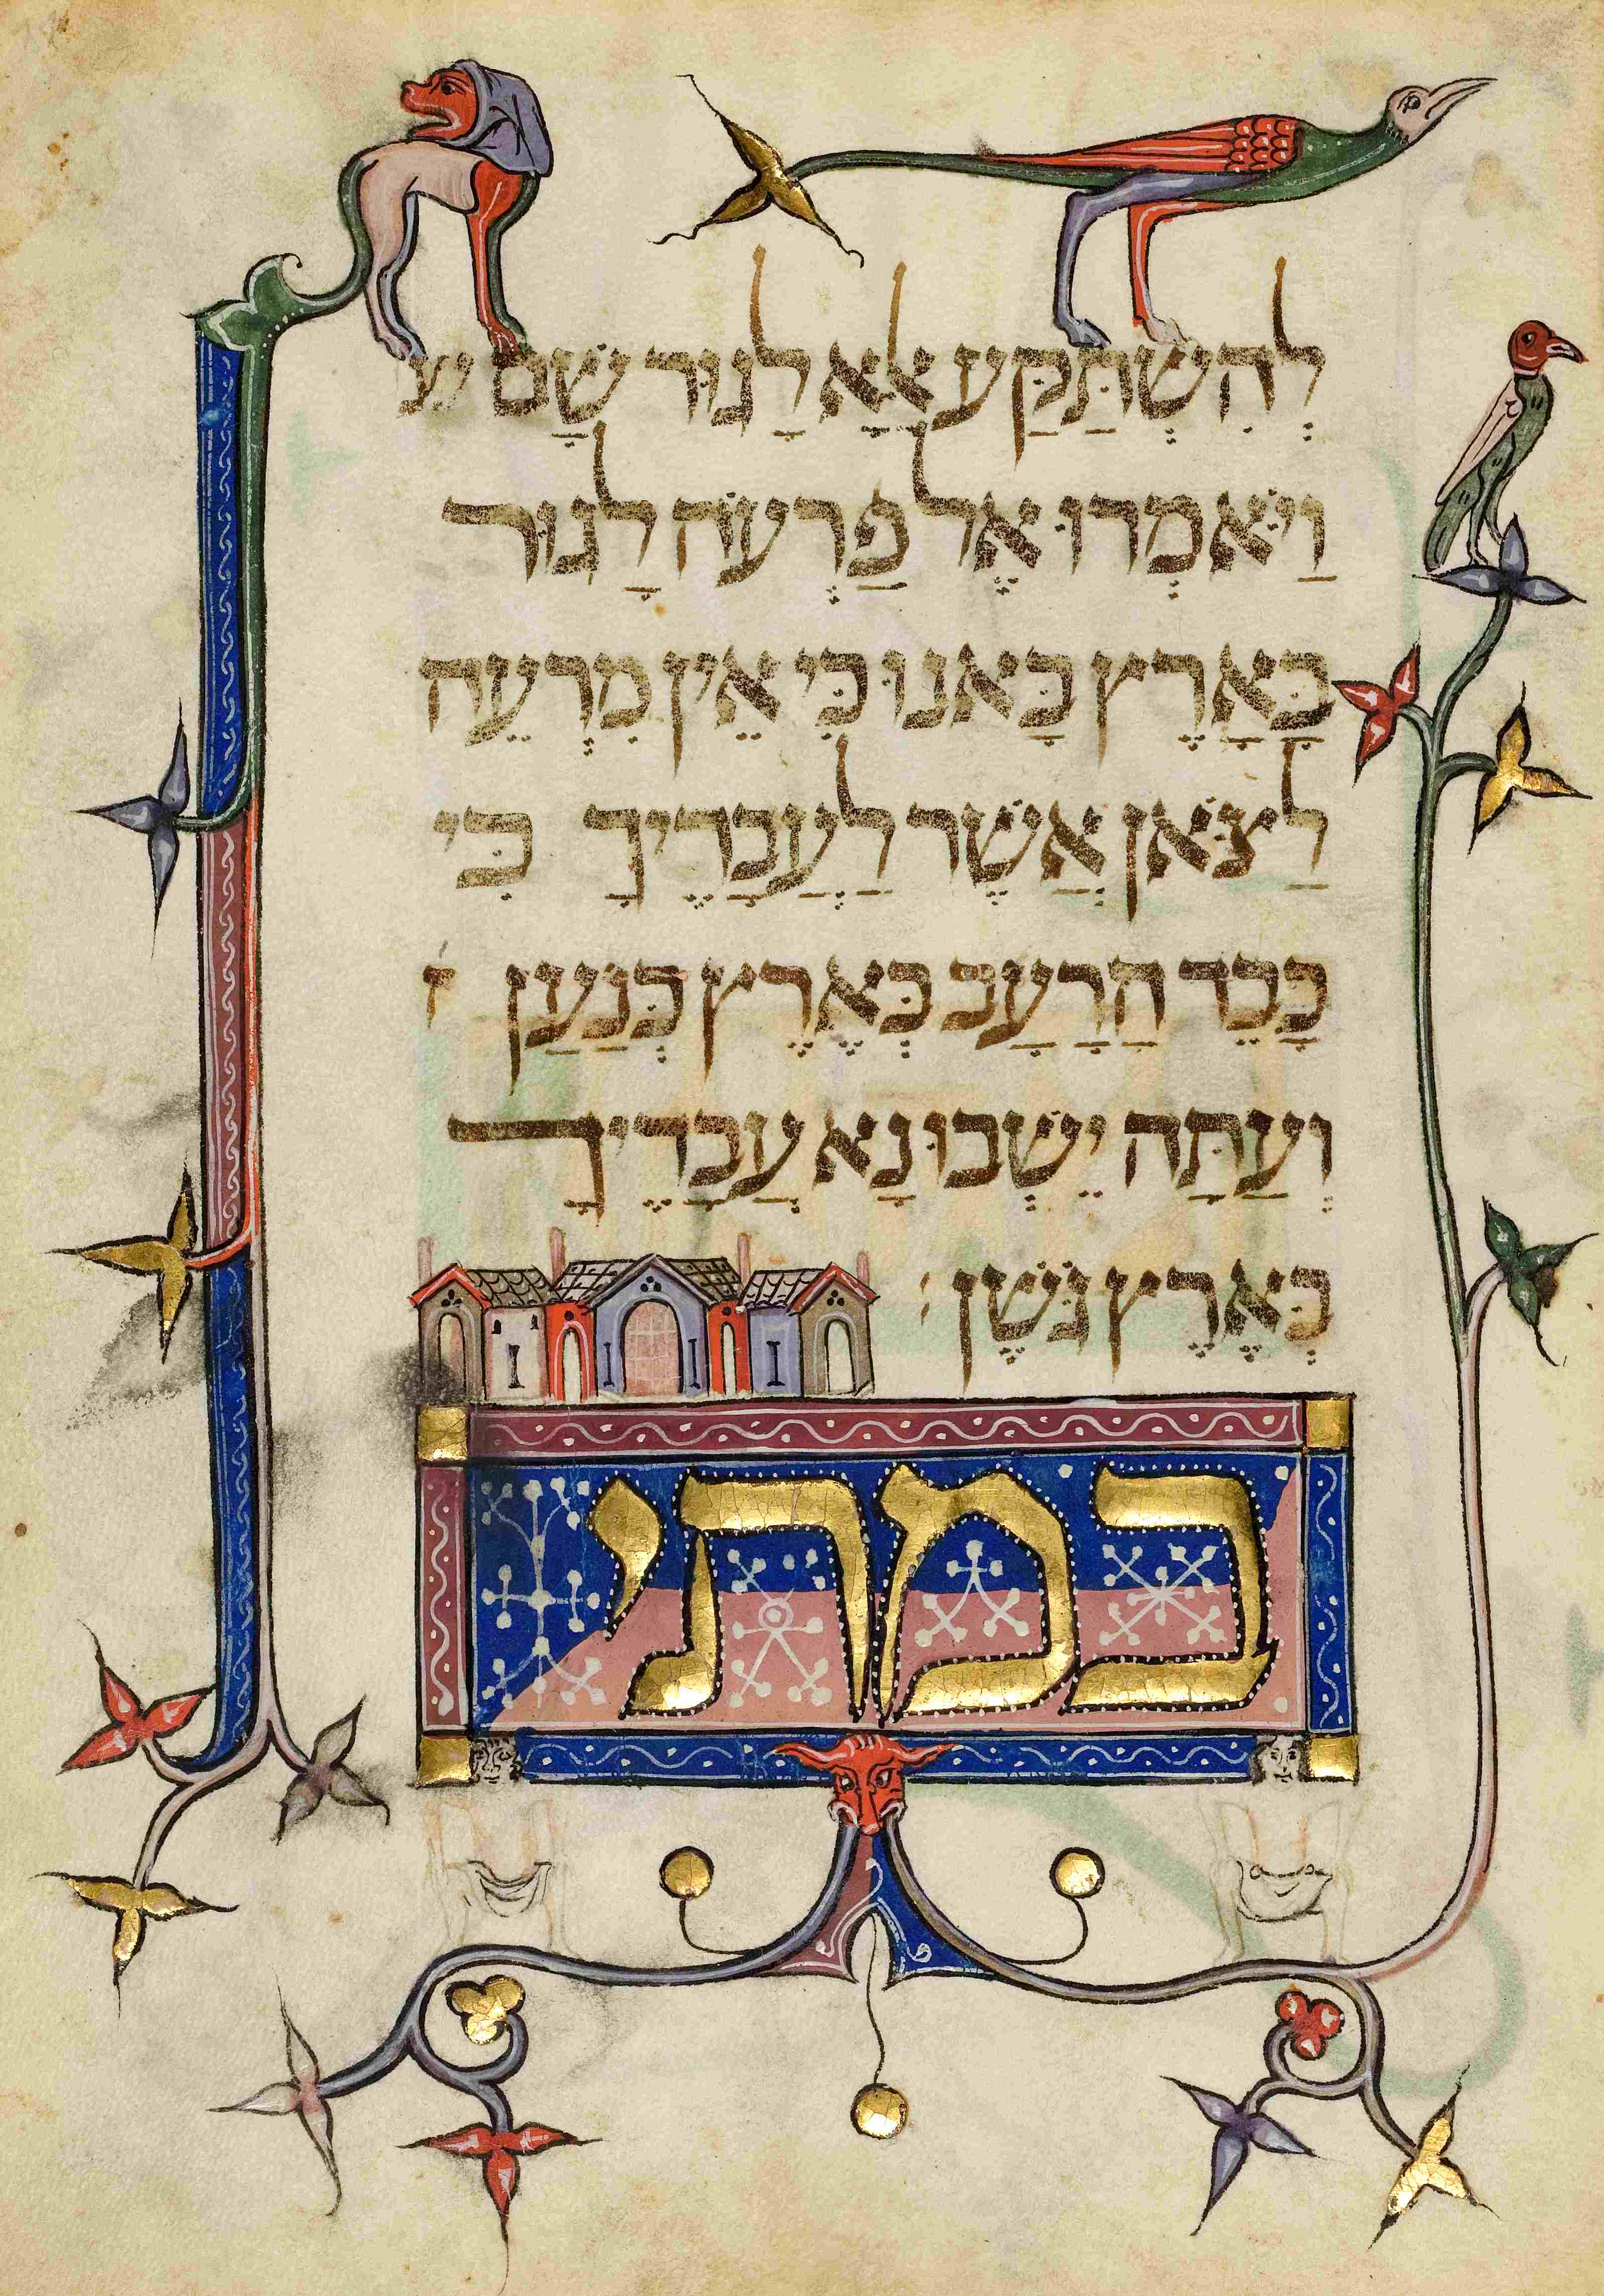 לְהִשְׁתַּקַּע אֶלָּא לָגוּר שָׁם שנ
וַיֹּאמְרוּ אֶל פַּרְעֹה לָגוּר
בָּאָרֶץ בָּאנוּ כִּי אֵין מִרְעֶה
לַצֹּאן אֲשֶׁר לַעֲבָדֶיךָ כִּי
כָּבֵד הָרָעָב בְּאֶרֶץ כְּנַעַן ו
וְעַתָּה יֵשְׁבוּ נָא עֲבָדֶיךָ
בְּאֶרֶץ גֹּשֶׁן׃
במתי